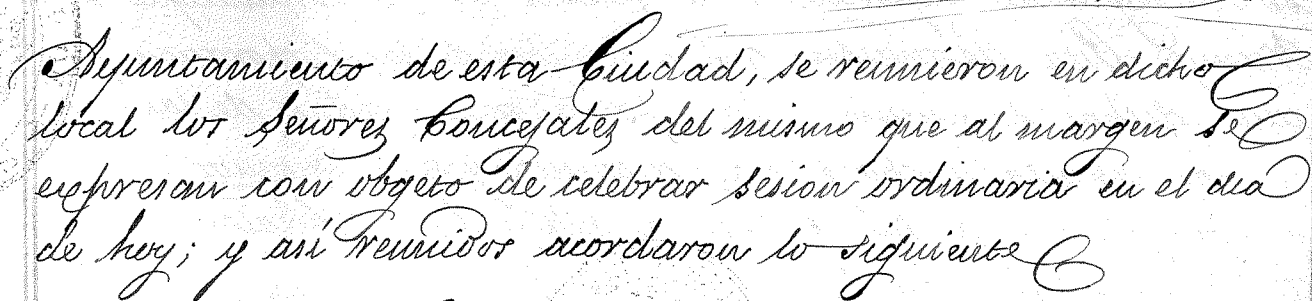 Ayuntamiento de esta Ciudad, se reunieron en dicho
local los Señores Concejales del mismo que al margen se
expresan con obgeto de celebrar sesion ordinaria en el dia
de hoy; y así reunidos acordaron lo siguiente